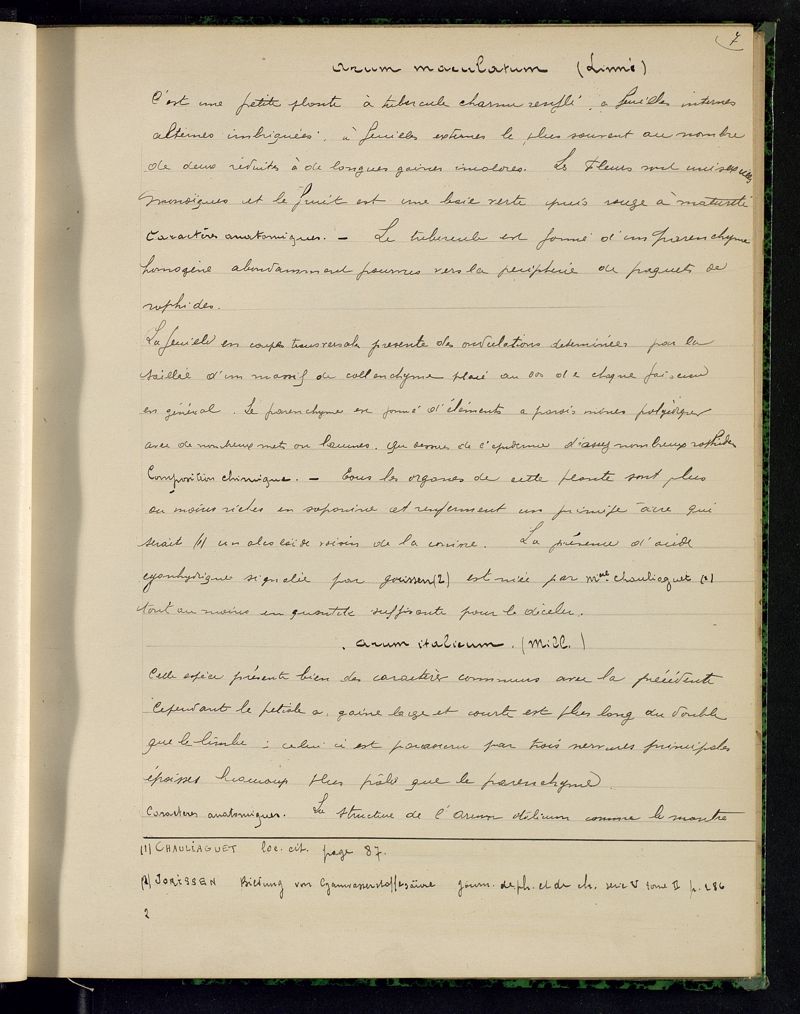 7
Arum maculatum (Linné)
C'est une petite plante à tubercule charnu renflé, a feuilles internes
alternes imbriquées, à feuilles externes le plus souvent au nombre
de deux réduites à de longues gaines incolores. Les Fleurs sont unisexuées
monoiques et le fruit est une baie verte puis rouge à maturité
Caractères anatomiques. — Le tubercule est formé d'un parenchyme
homogène abondamment pourvu vers la peripherie de paquets de
raphides.
La feuille en coupe transversale presente des ondulations determinées par la
saillie d'un massif de collenchyme placé au dos de chaque faisceau
en général. Le parenchyme est formé d'éléments a parois minces polyédriques
avec de nombreux meats ou lacunes. Au dessous de l'epiderme d'assez nombreux raphides
Composition chimique. — Tous les organes de cette plante sont plus
ou moins riches en saponine et renferment un principe âcre qui
serait (1) un alcaloïde voisin de la conine. La présence d'acide
cyanhydrique signalée par Jorissen (2) est niée par Mme Chauliaguet (1)
tout au moins en quantité suffisante pour le déceler.
Arum italicum. (Mill.)
Cette espèce présente bien des caractères communs avec la précédente
Cependant le petiole a gaine large et courte est plus long du double
que le limbe : celui ci est parcouru par trois nervures principales
épaisses beaucoup plus pâles que le parenchyme.
Caractères anatomiques. La structure de l'Arum italicum comme le montre
(1) CHAULIAGUET loc. cit. page 87.
(2) JORISSEN Bildung von Cyanwasserstoffsäure Journ. de ph. et de ch. serie V tome II p. 286
2